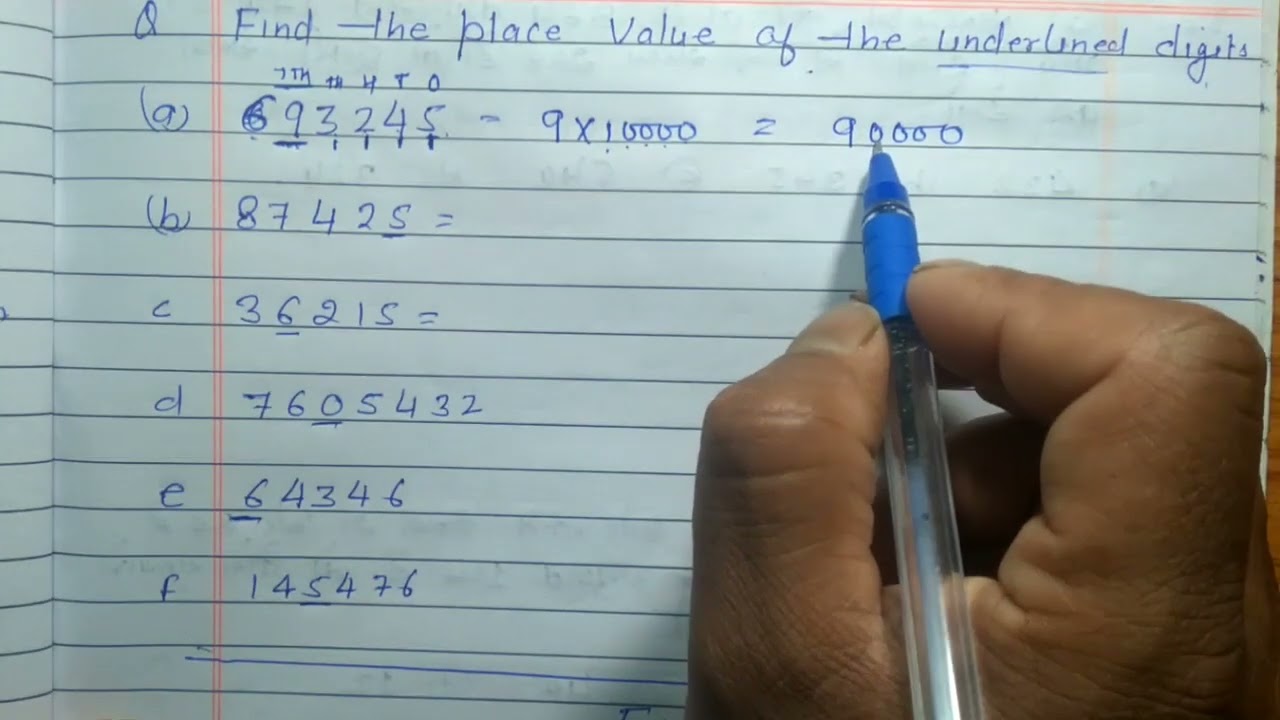 Q Find the place Value of the underlined digits.
TTH TH H T O
(a) 693245 - 9×10000 = 90000
(b) 87425 =
c 36215 =
d 7605432
e 64346
f 145476